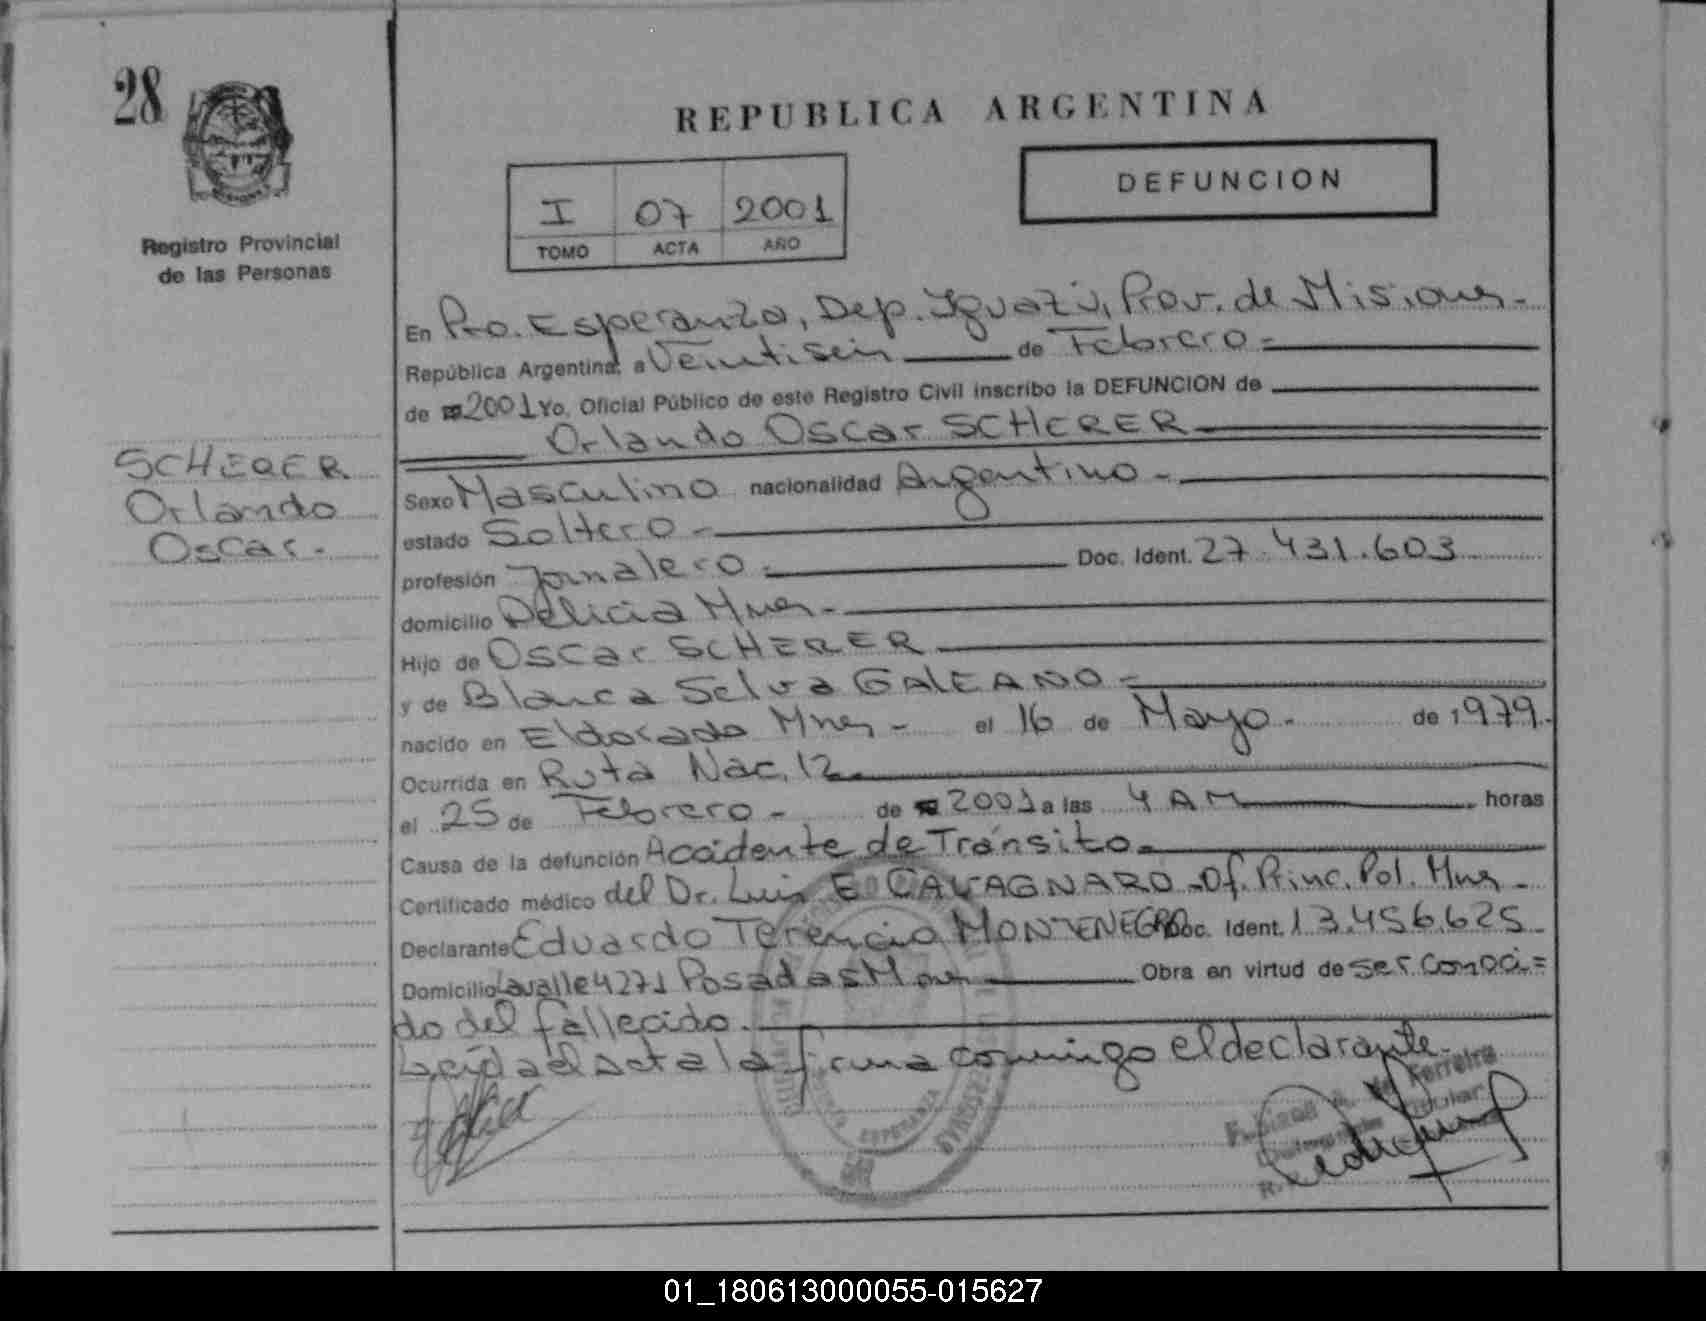 28
REPUBLICA ARGENTINA
DEFUNCION
I 07 2001
TOMO ACTA AÑO
Registro Provincial
de las Personas
SCHERER
Orlando
Oscar.
En Pto. Esperanza, Dep. Iguazú, Prov. de Misiones-
República Argentina, a Veintiseis de Febrero-
de 2001 Yo, Oficial Público de este Registro Civil inscribo la DEFUNCION de
Orlando Oscar SCHERER
Sexo Masculino nacionalidad Argentino-
estado Soltero-
profesión Jornalero- Doc. Ident. 27.431.603
domicilio Delicia Mnes-
Hijo de Oscar SCHERER
y de Blanca Selva GALEANO-
nacido en Eldorado Mnes- el 16 de Mayo- de 1979-
Ocurrida en Ruta Nac. 12
el 25 de Febrero- de 2001 a las 4 AM horas
Causa de la defunción Accidente de Tránsito-
Certificado médico del Dr. Luis E CAVAGNARO-Of. Princ. Pol. Mnes-
Declarante Eduardo Terencio MONTENEGRO Doc. Ident. 13.456.625-
Domicilio Lavalle 4271 Posadas Mnes Obra en virtud de ser conoci=
do del fallecido.
Leida el acta la firma conmigo el declarante-
de Ferreira
Titular
ESPERANZA
01_180613000055-015627